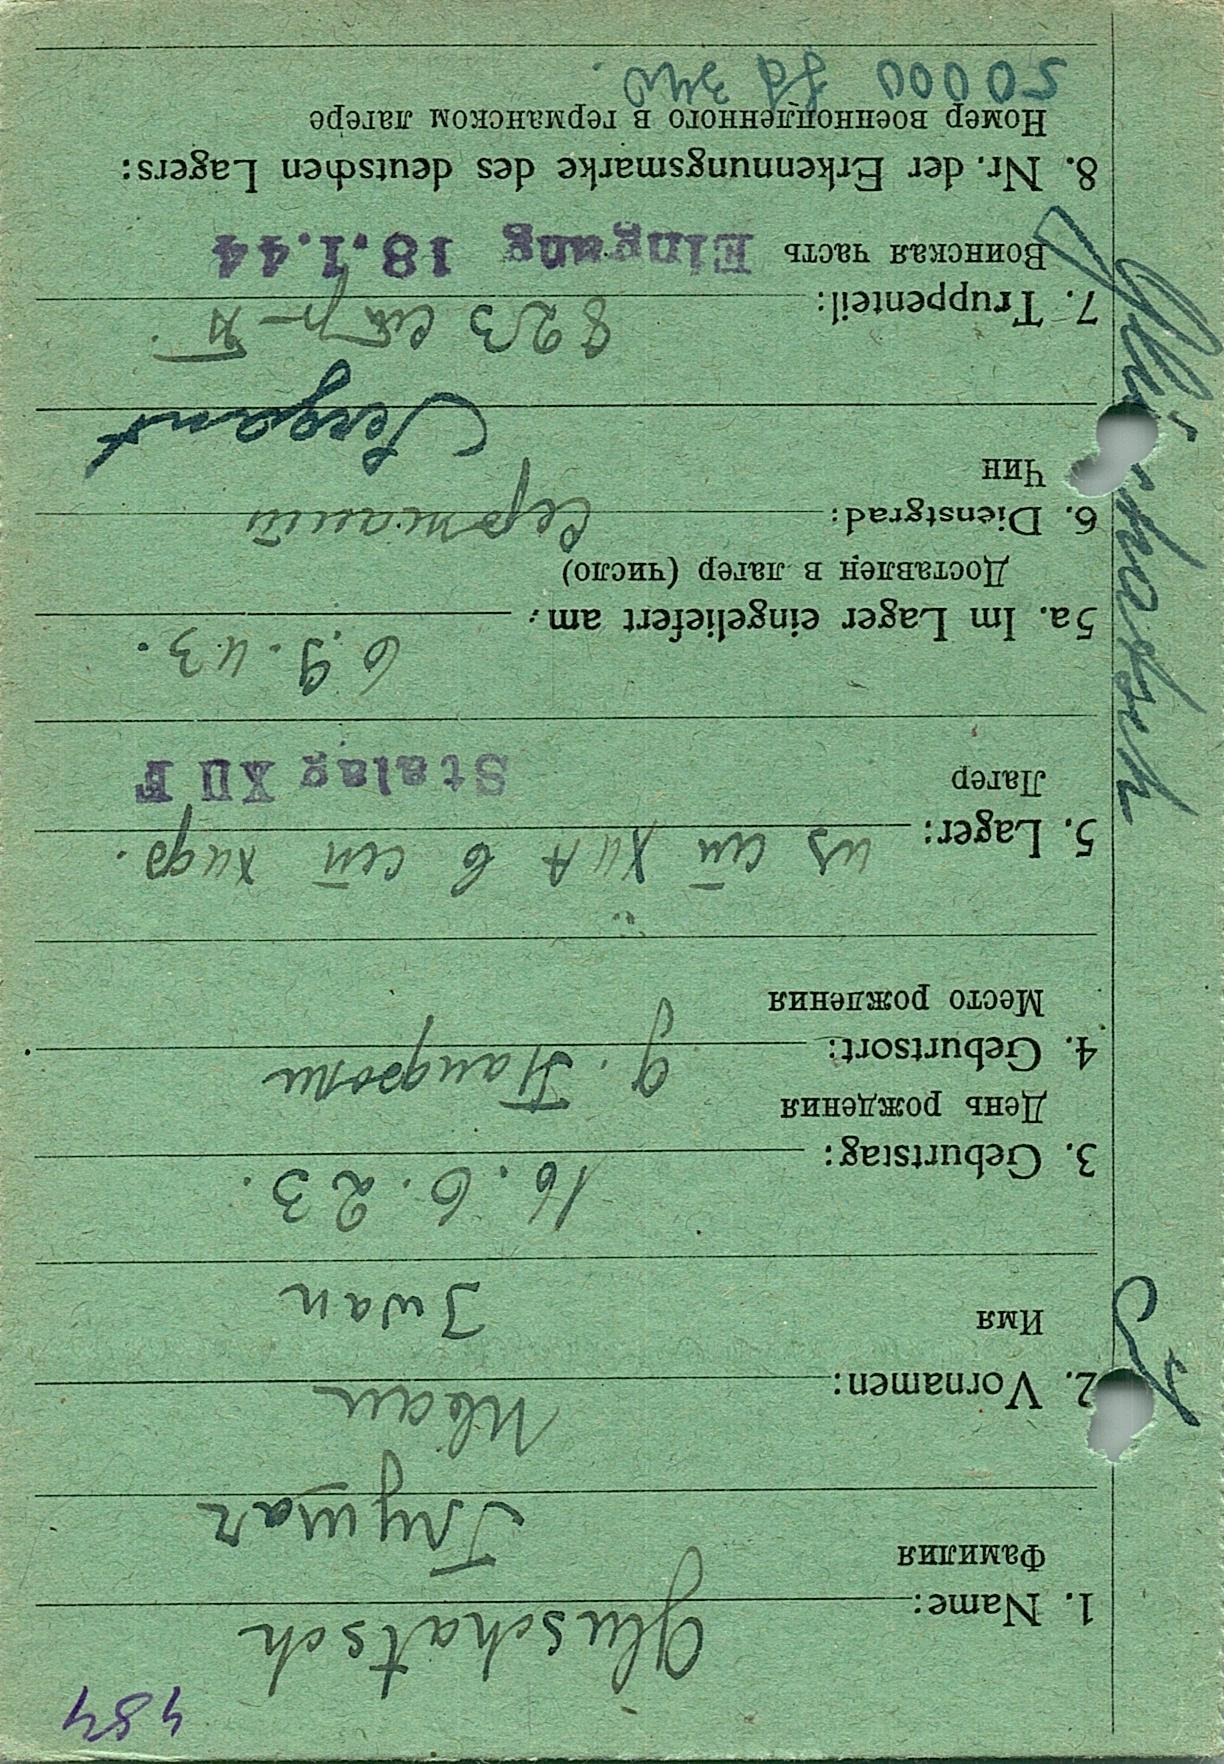 484
Gluschatsch
1. Name:
Фамилия
Глушач
Иван
2. Vornamen:
Имя
Iwan
16. 6. 23.
3. Geburtstag:
День рождения
4. Geburtsort:
Место рождения
из шт XII A в шт XII F.
5. Lager:
Лагер
Stalag XII F
6. 9. 43.
5a. Im Lager eingeliefert am:
Доставлен в лагер (число)
Сержант
6. Dienstgrad:
Чин
Sergant
823
7. Truppenteil:
Воинская часть
Eingang 18.1.44
8. Nr. der Erkennungsmarke des deutschen Lagers:
Номер военнопленного в германском лагере
50000
Gluschatsch